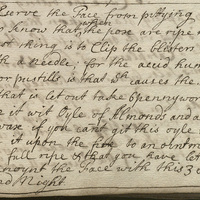 serve the Face from pitting
to Know that when the poxe are ripe
thing is to Clip the blisters
with a needle; for the acud humo
or pustills is that wch causes the
that is let out take 6 pennywor
it wit Oyle of Almonds and a
wax if you cant git this oyle
it upon the fire to an ointm
full ripe & that you have let
anoynt the Face with this 3 o
nd Night